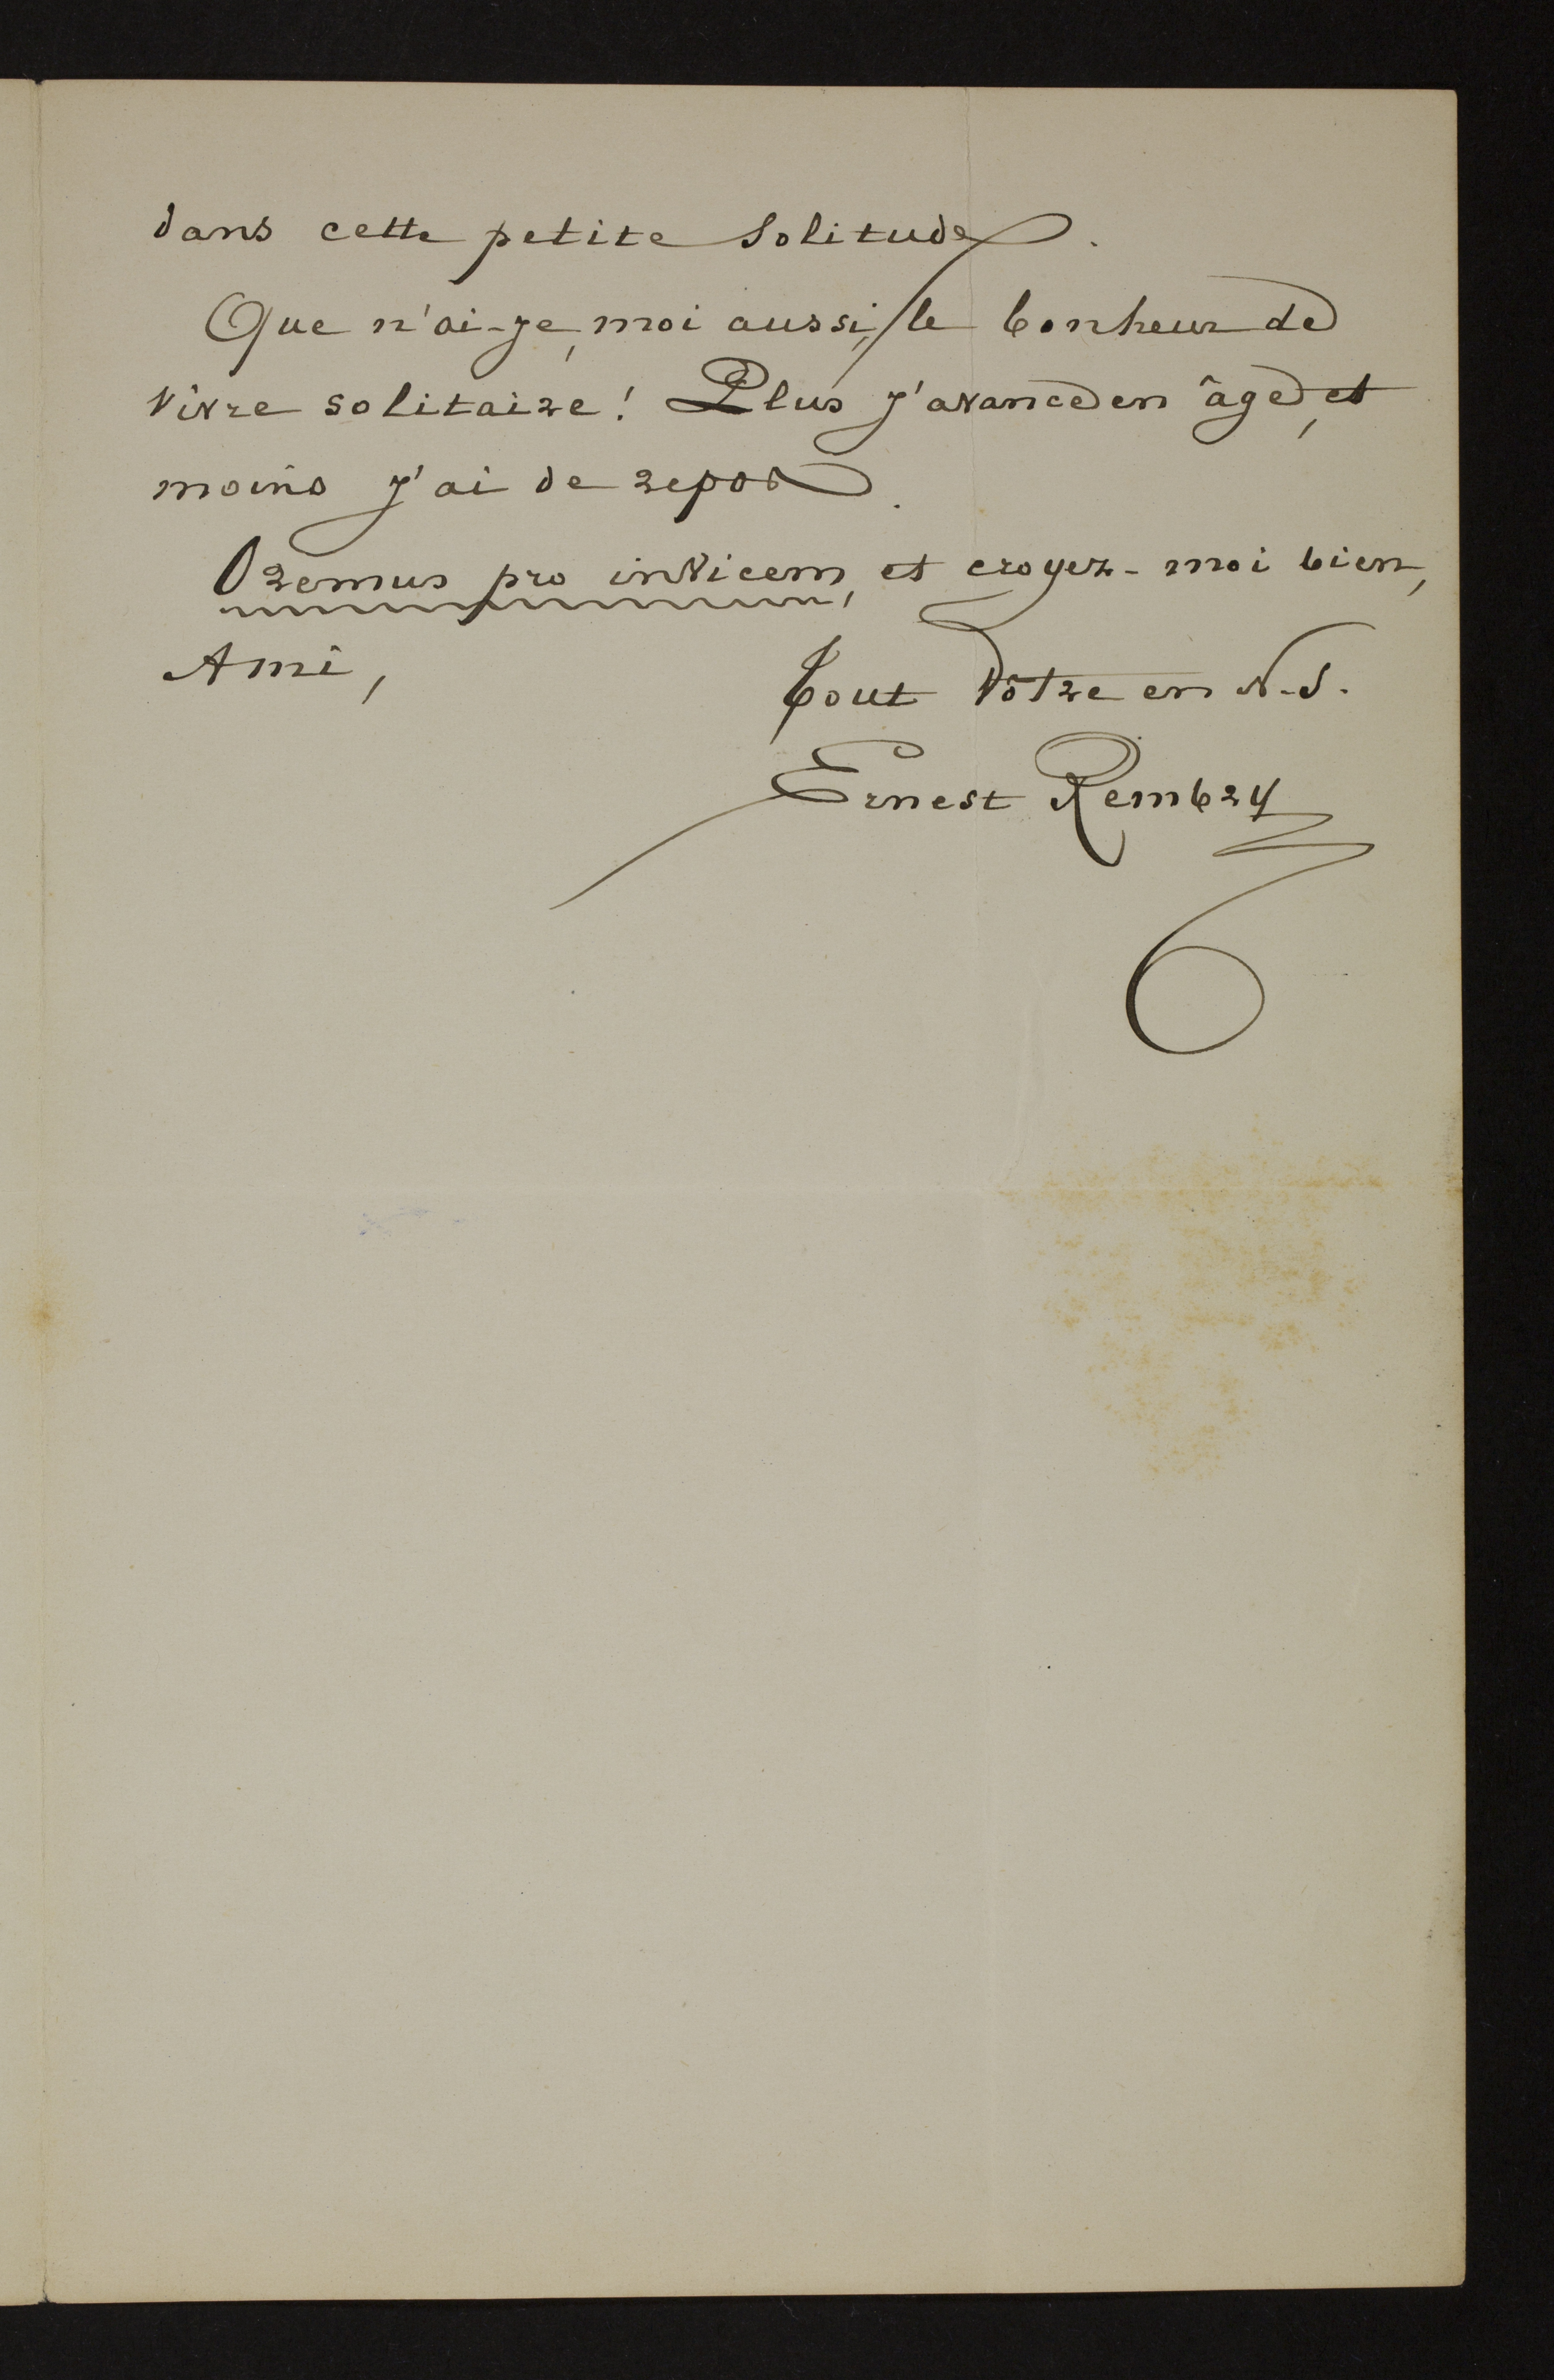 dans cette petite solitude.
Que n'ai-je, moi aussi, le bonheur de
vivre solitaire! Plus j'avance en âge, et
moins j'ai de repos.
Oremus pro invicem, et croyez-moi bien,
Ami,
Tout Vôtre en N.-S.
Ernest Rembry